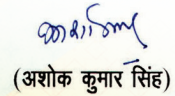 (अशोक कुमार सिंह)